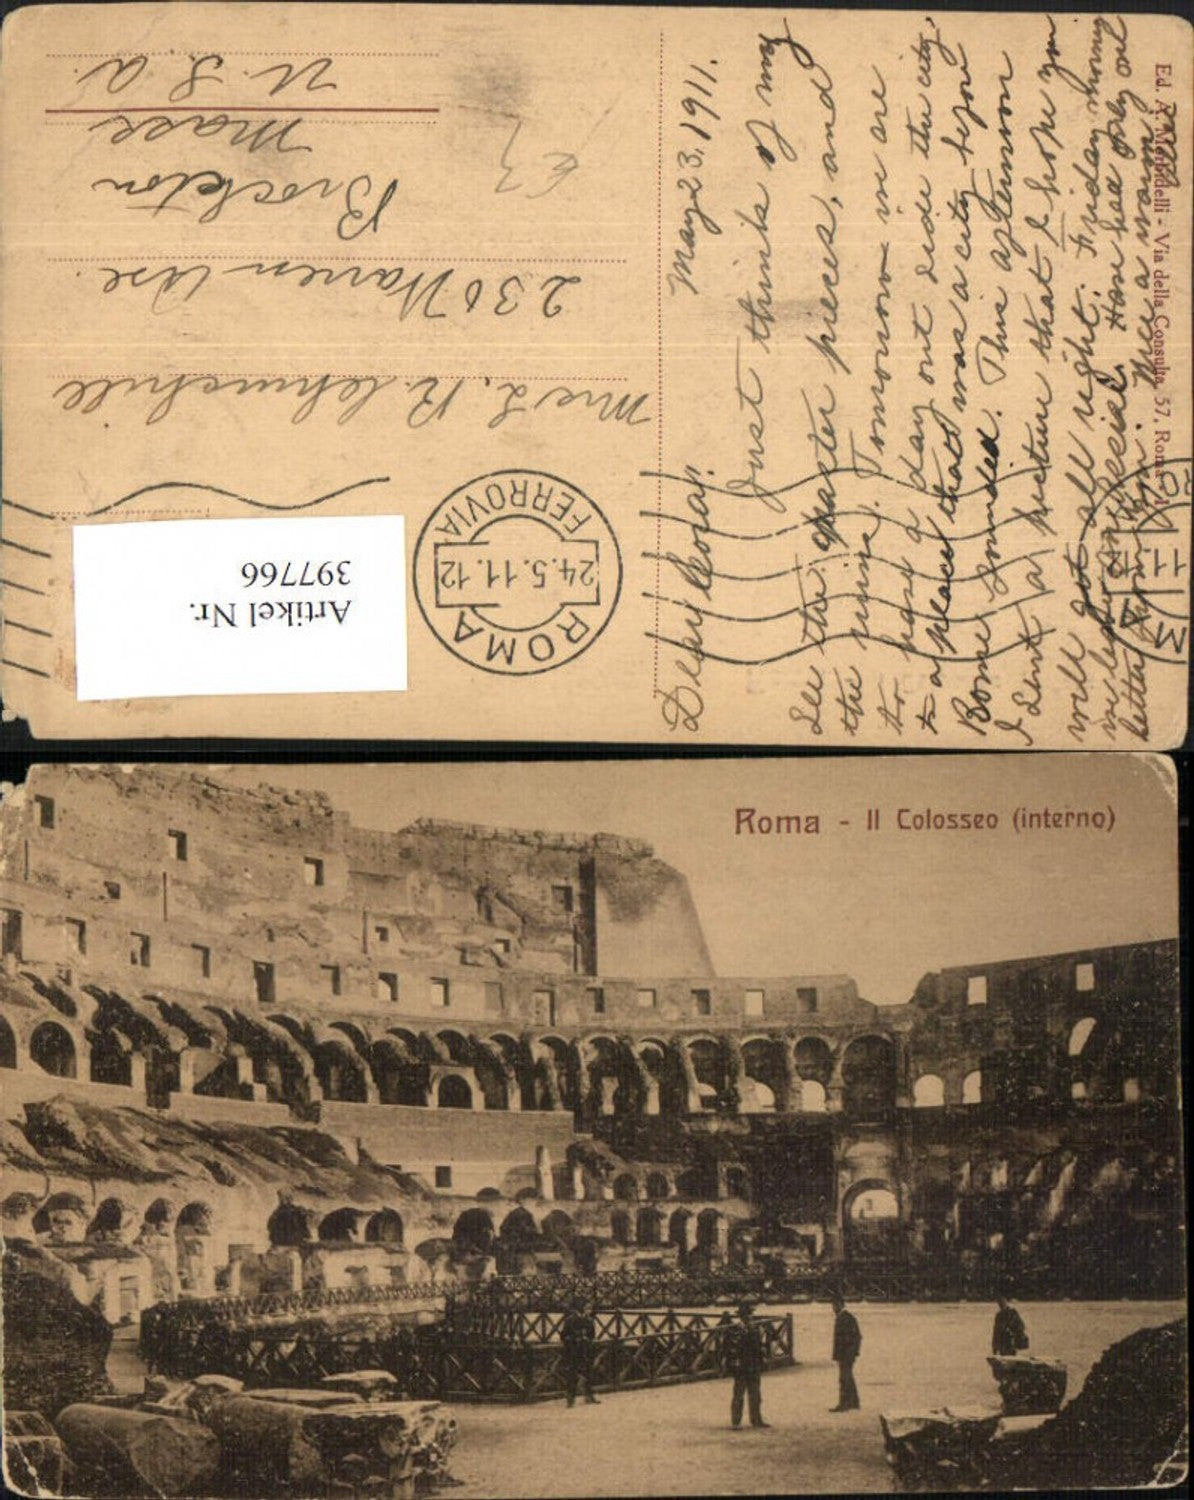 May 23, 1911.
Dear Leona:
Just think of my
See the master pieces, and
the ruins. Tomorrow we are
to have a day out side the city,
to a place that was a city before
Rome founded. This afternoon
I sent a picture that I hope you
will get all right. Friday morning
we leave
Have had only one
letter from
Ed. A. Morbidelli - Via della Consulta, 57, Roma
Mrs L. R. Churchill
230 Warren Ave.
Brockton
Mass
U. S. A.
€7
ROMA
24.5.11.12
FERROVIA
Artikel Nr.
397766
Roma - Il Colosseo (interno)